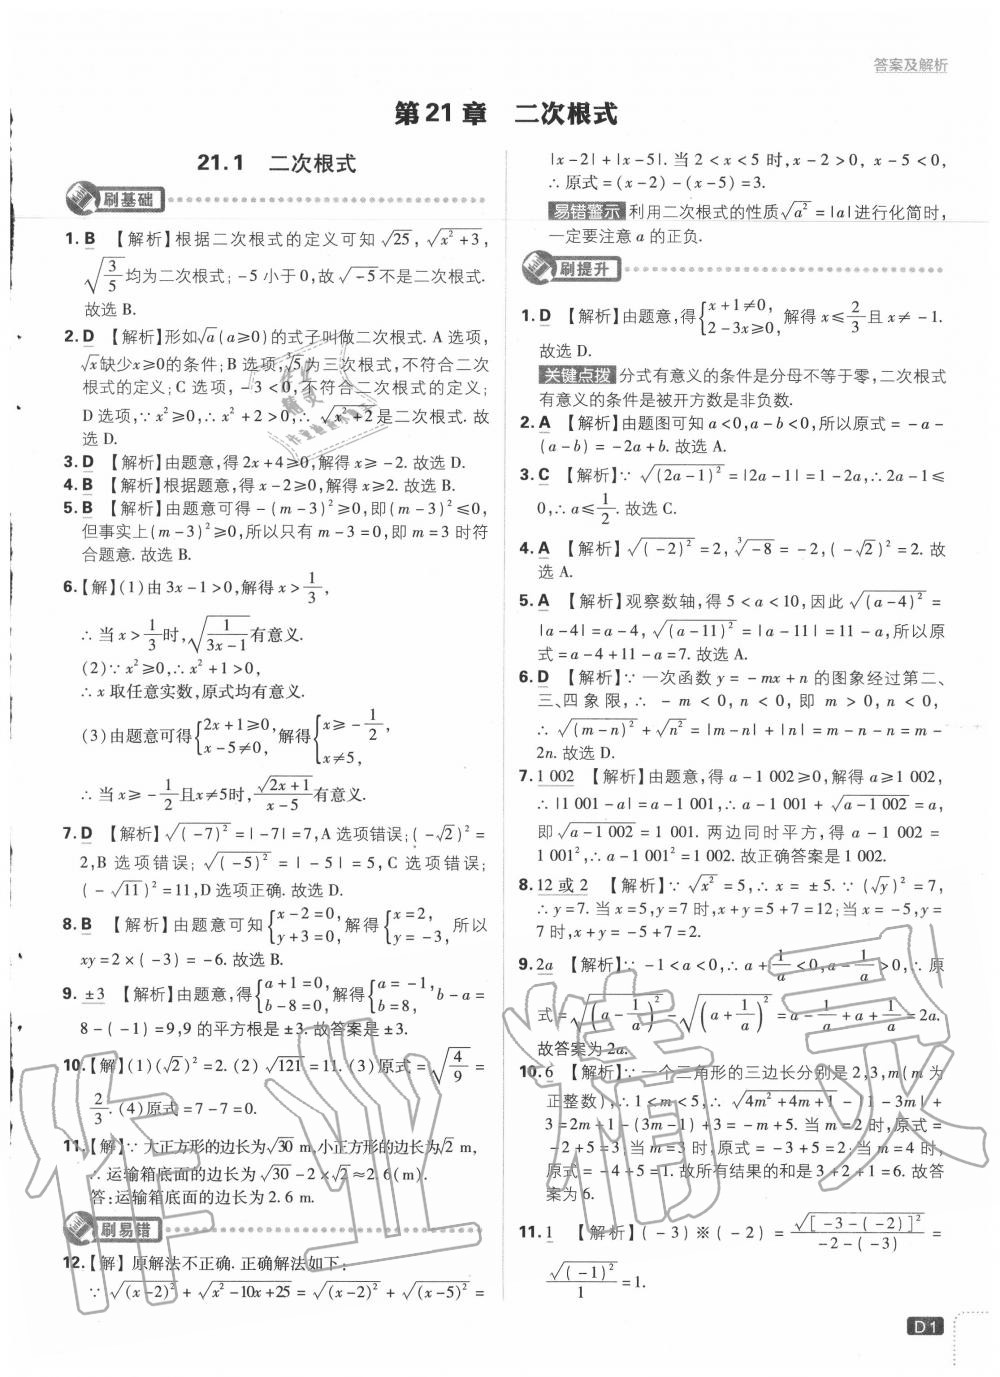 答案及解析
第21章 二次根式
21.1 二次根式
刷基础
1. B 【解析】根据二次根式的定义可知 √25, √(x²+3),
√(3/5) 均为二次根式; -5 小于 0, 故 √-5 不是二次根式.
故选 B.
2. D 【解析】形如√a(a≥0)的式子叫做二次根式. A 选项,
√x缺少x≥0的条件; B 选项, ³√5为三次根式,不符合二次
根式的定义; C 选项, -3<0, 不符合二次根式的定义;
D 选项, ∵ x²≥0, ∴ x²+2>0, ∴ √(x²+2)是二次根式. 故
选 D.
3. D 【解析】由题意,得 2x+4≥0,解得 x≥-2. 故选 D.
4. B 【解析】根据题意,得 x-2≥0,解得 x≥2. 故选 B.
5. B 【解析】由题意可得 -(m-3)²≥0,即(m-3)²≤0,
但事实上(m-3)²≥0,所以只有 m-3=0,即 m=3 时符
合题意. 故选 B.
6.【解】(1)由 3x-1>0,解得 x>1/3,
∴ 当 x>1/3时, √(1/(3x-1))有意义.
(2)∵ x²≥0, ∴ x²+1>0,
∴ x 取任意实数,原式均有意义.
(3)由题意可得{2x+1≥0, x-5≠0, 解得{x≥-1/2, x≠5,
∴ 当 x≥-1/2且 x≠5时, √(2x+1)/(x-5)有意义.
7. D 【解析】√(-7)²=|-7|=7,A 选项错误; (-√2)²=
2,B 选项错误; √(-5)²=|-5|=5,C 选项错误;
(-√11)²=11,D 选项正确. 故选 D.
8. B 【解析】由题意可知{x-2=0, y+3=0, 解得{x=2, y=-3, 所以
xy=2×(-3)=-6. 故选 B.
9. ±3 【解析】由题意,得{a+1=0, b-8=0, 解得{a=-1, b=8, b-a=
8-(-1)=9,9 的平方根是±3. 故答案是±3.
10.【解】(1)(√2)²=2. (2) √121=11. (3)原式=√(4/9)=
2/3. (4)原式=7-7=0.
11.【解】∵ 大正方形的边长为√30 m,小正方形的边长为√2 m,
∴ 运输箱底面的边长为√30-2×√2≈2.6(m).
答:运输箱底面的边长为 2.6 m.
刷易错
12.【解】 原解法不正确. 正确解法如下:
∵ √(x-2)²+√(x²-10x+25)=√(x-2)²+√(x-5)²=
|x-2|+|x-5|. 当 2<x<5 时, x-2>0, x-5<0,
∴ 原式=(x-2)-(x-5)=3.
易错警示 利用二次根式的性质√a²=|a|进行化简时,
一定要注意 a 的正负.
刷提升
1. D 【解析】由题意,得{x+1≠0, 2-3x≥0, 解得 x≤2/3且 x≠-1.
故选 D.
关键点拨 分式有意义的条件是分母不等于零,二次根式
有意义的条件是被开方数是非负数.
2. A 【解析】由题图可知 a<0,a-b<0,所以原式=-a-
(a-b)=-2a+b. 故选 A.
3. C 【解析】∵ √(2a-1)²=|2a-1|=1-2a, ∴ 2a-1≤
0, ∴ a≤1/2. 故选 C.
4. A 【解析】√(-2)²=2, ³√-8=-2, (-√2)²=2. 故
选 A.
5. A 【解析】观察数轴,得 5<a<10,因此√(a-4)²=
|a-4|=a-4, √(a-11)²=|a-11|=11-a,所以原
式=a-4+11-a=7. 故选 A.
6. D 【解析】∵ 一次函数 y=-mx+n 的图象经过第二、
三、四象限, ∴ -m<0, n<0, 即 m>0, n<0,
∴ √(m-n)²+√n²=|m-n|+|n|=m-n-n=m-
2n. 故选 D.
7. 1 002 【解析】由题意,得 a-1 002≥0,解得 a≥1 002,
∴ |1 001-a|=a-1 001, ∴ a-1 001+√(a-1 002)=a,
即√(a-1 002)=1 001. 两边同时平方,得 a-1 002=
1 001², ∴ a-1 001²=1 002. 故正确答案是 1 002.
8. 12 或 2 【解析】∵ √x²=5, ∴ x=±5. ∵ (√y)²=7,
∴ y=7. 当 x=5,y=7 时,x+y=5+7=12;当 x=-5,y=
7 时,x+y=-5+7=2.
9. 2a 【解析】∵ -1<a<0, ∴ a+1/a<0,a-1/a>0, ∴ 原
式=√(a-1/a)²-√(a+1/a)²=a-1/a+a+1/a=2a.
故答案为 2a.
10. 6 【解析】∵ 一个三角形的三边长分别是 2,3,m(m 为
正整数), ∴ 1<m<5, ∴ √(4m²+4m+1)-|1-3m|+
3=2m+1-(3m-1)+3=-m+5. 当 m=2 时,原式=
-2+5=3;当 m=3 时,原式=-3+5=2;当 m=4 时,
原式=-4+5=1. 故所有结果的和是 3+2+1=6. 故答
案为 6.
11. 1 【解析】(-3)※(-2)=√[-3-(-2)]²/(-2-(-3))=
√(-1)²/1=1.
D1
作业精灵